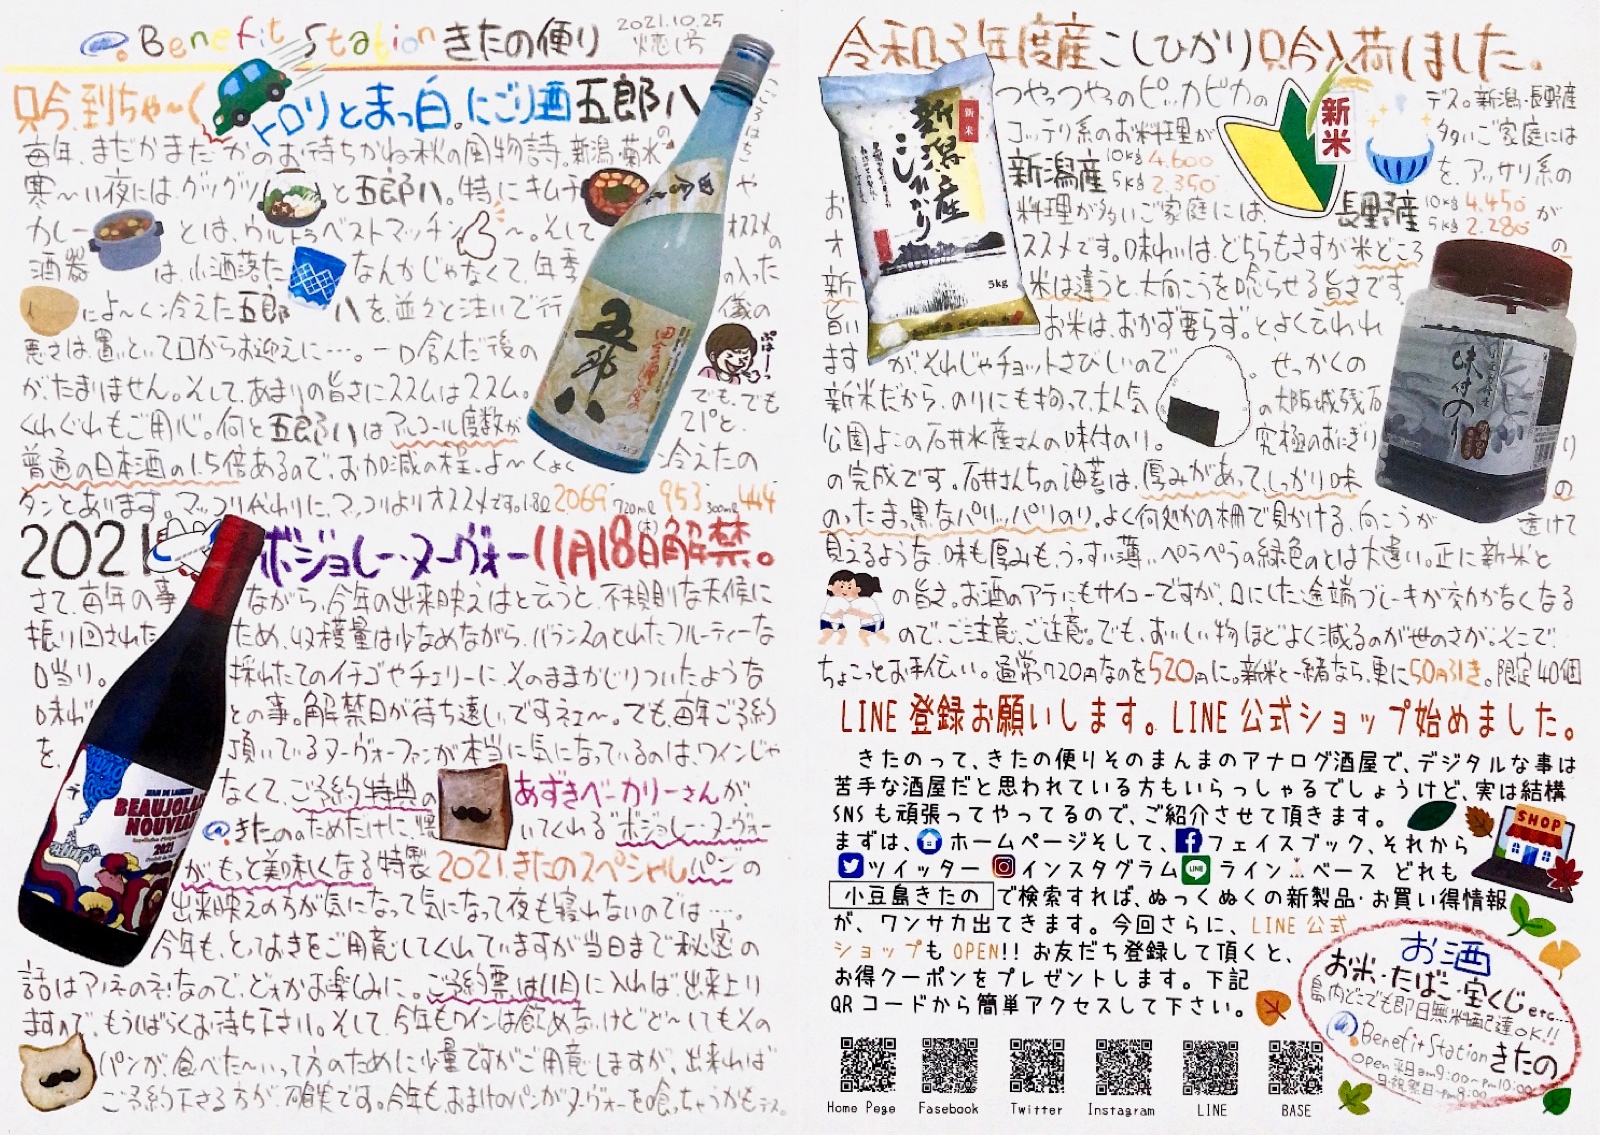 @. Benefit Station きたの便り 2021.10.25
只今、到ちゃ〜く トロリとまっ白。にごり酒 五郎八
毎年、まだかまだかのお待ちかね秋の風物詩。新潟・菊水の
寒〜い夜には、グッグツ と五郎八。特にキムチ や
カレー とは、ウルトラベストマッチング 〜。そして オススメの
酒器 は、小洒落た なんかじゃなくて、年季の入った
によ〜く冷えた五郎八を、並々と注いで行儀の
悪さは、置いといて口からお迎えに…。一口含んだ後の ぷはーっ
がたまりません。そして、あまりの旨さにススムはススム。でも、でも
くれぐれもご用心。何と五郎八はアルコール度数が21°と、
普通の日本酒の1.5倍あるので、お加減の程、よ〜くよく 冷えたの
タンとあります。マッコリ代わりに、マッコリよりオススメです。1.8ℓ 2069 720mℓ 953 300mℓ 444
2021 ボジョレー・ヌーヴォー 11月18日(木)解禁。
さて、毎年の事ながら、今年の出来映えはと云うと、不規則な天候に
振り回されたため、収穫量は少なめながら、バランスのとれたフルーティーな
口当り。採れたてのイチゴやチェリーに、そのままかじりついたような
味わいとの事。解禁日が待ち遠しいですネェ〜。でも、毎年ご予約
を、頂いているヌーヴォーファンが本当に気になっているのは、ワインじゃ
なくて、ご予約特典のあずきベーカリーさんが、
@きたののためだけに、焼いてくれる"ボジョレー・ヌーヴォー
が、もっと美味くなる特製 2021.きたのスペシャルパンの
出来映えの方が気になって気になって夜も寝れないのでは…。
今年も、とっておきをご用意してくれていますが当日まで秘密の
話はアノネのネなので、どぉかお楽しみに。ご予約票は11月に入れば、出来上り
ますので、もうしばらくお待ち下さい。そして、今年もワインは飲めないけどど〜してもその
パンが、食べた〜いって方のために少量ですがご用意しますが、出来れば
ご予約下さる方が、確実です。今年も、おまけのパンがヌーヴォーを喰っちゃうかもデス。
五郎八
JEAN DE LAURERE
BEAUJOLAIS NOUVEAU
2021
令和3年度産こしひかり只今入荷しました。
つやっつやのピッカピカの 新米 デス。新潟・長野産
コッテリ系のお料理が多いご家庭には
新潟産 10kg 4.600 5kg 2.350 を、アッサリ系の
お料理が多いご家庭には、長野産 10kg 4.450 5kg 2.280 が
オススメです。味わいは、どちらもさすが米どころの
新米は違うと、大向こうを唸らせる旨さです。
旨いお米は、おかず要らず。とよく云われ
ますが、それじゃチョットさびしいので 。せっかくの
新米だから、のりにも拘って、大人気の大阪城残石
公園よこの石井水産さんの味付のり。究極のおにぎり
の完成です。石井さんちの海苔は、厚みがあって、しっかり味
ののったまっ黒なパリッパリのり。よく何処かの棚で見かける、向こうが透けて
見えるような、味も厚みも、うっすい薄いペラペラの緑色のとは大違い。正に新米と
の旨さ。お酒のアテにもサイコーですが、口にした途端ブレーキが効かなくなる
ので、ご注意、ご注意。でも、おいしい物ほどよく減るのが世のさが。そこで、
ちょこっとお手伝い。通常720円なのを520円に。新米と一緒なら、更に50円引き。限定40個
新米 新潟産 こしひかり 5kg
味付のり
LINE 登録お願いします。LINE 公式ショップ始めました。
きたのって、きたの便りそのまんまのアナログ酒屋で、デジタルな事は
苦手な酒屋だと思われている方もいらっしゃるでしょうけど、実は結構
SNS も頑張ってやってるので、ご紹介させて頂きます。
まずは、ホームページそして、フェイスブック、それから
ツイッター インスタグラム ライン ベース どれも
小豆島きたの で検索すれば、ぬっくぬくの新製品・お買い得情報
が、ワンサカ出てきます。今回さらに、LINE 公式
ショップも OPEN!! お友だち登録して頂くと、
お得クーポンをプレゼントします。下記
QR コードから簡単アクセスして下さい。
SHOP
お酒
お米・たばこ・宝くじ etc…
島内どこでも即日無料配達OK!!
@. Benefit Station きたの
Open 平日am9:00〜pm10:00
日・祝祭日〜pm9:00
Home Pege Fasebook Twitter Instagram LINE BASE